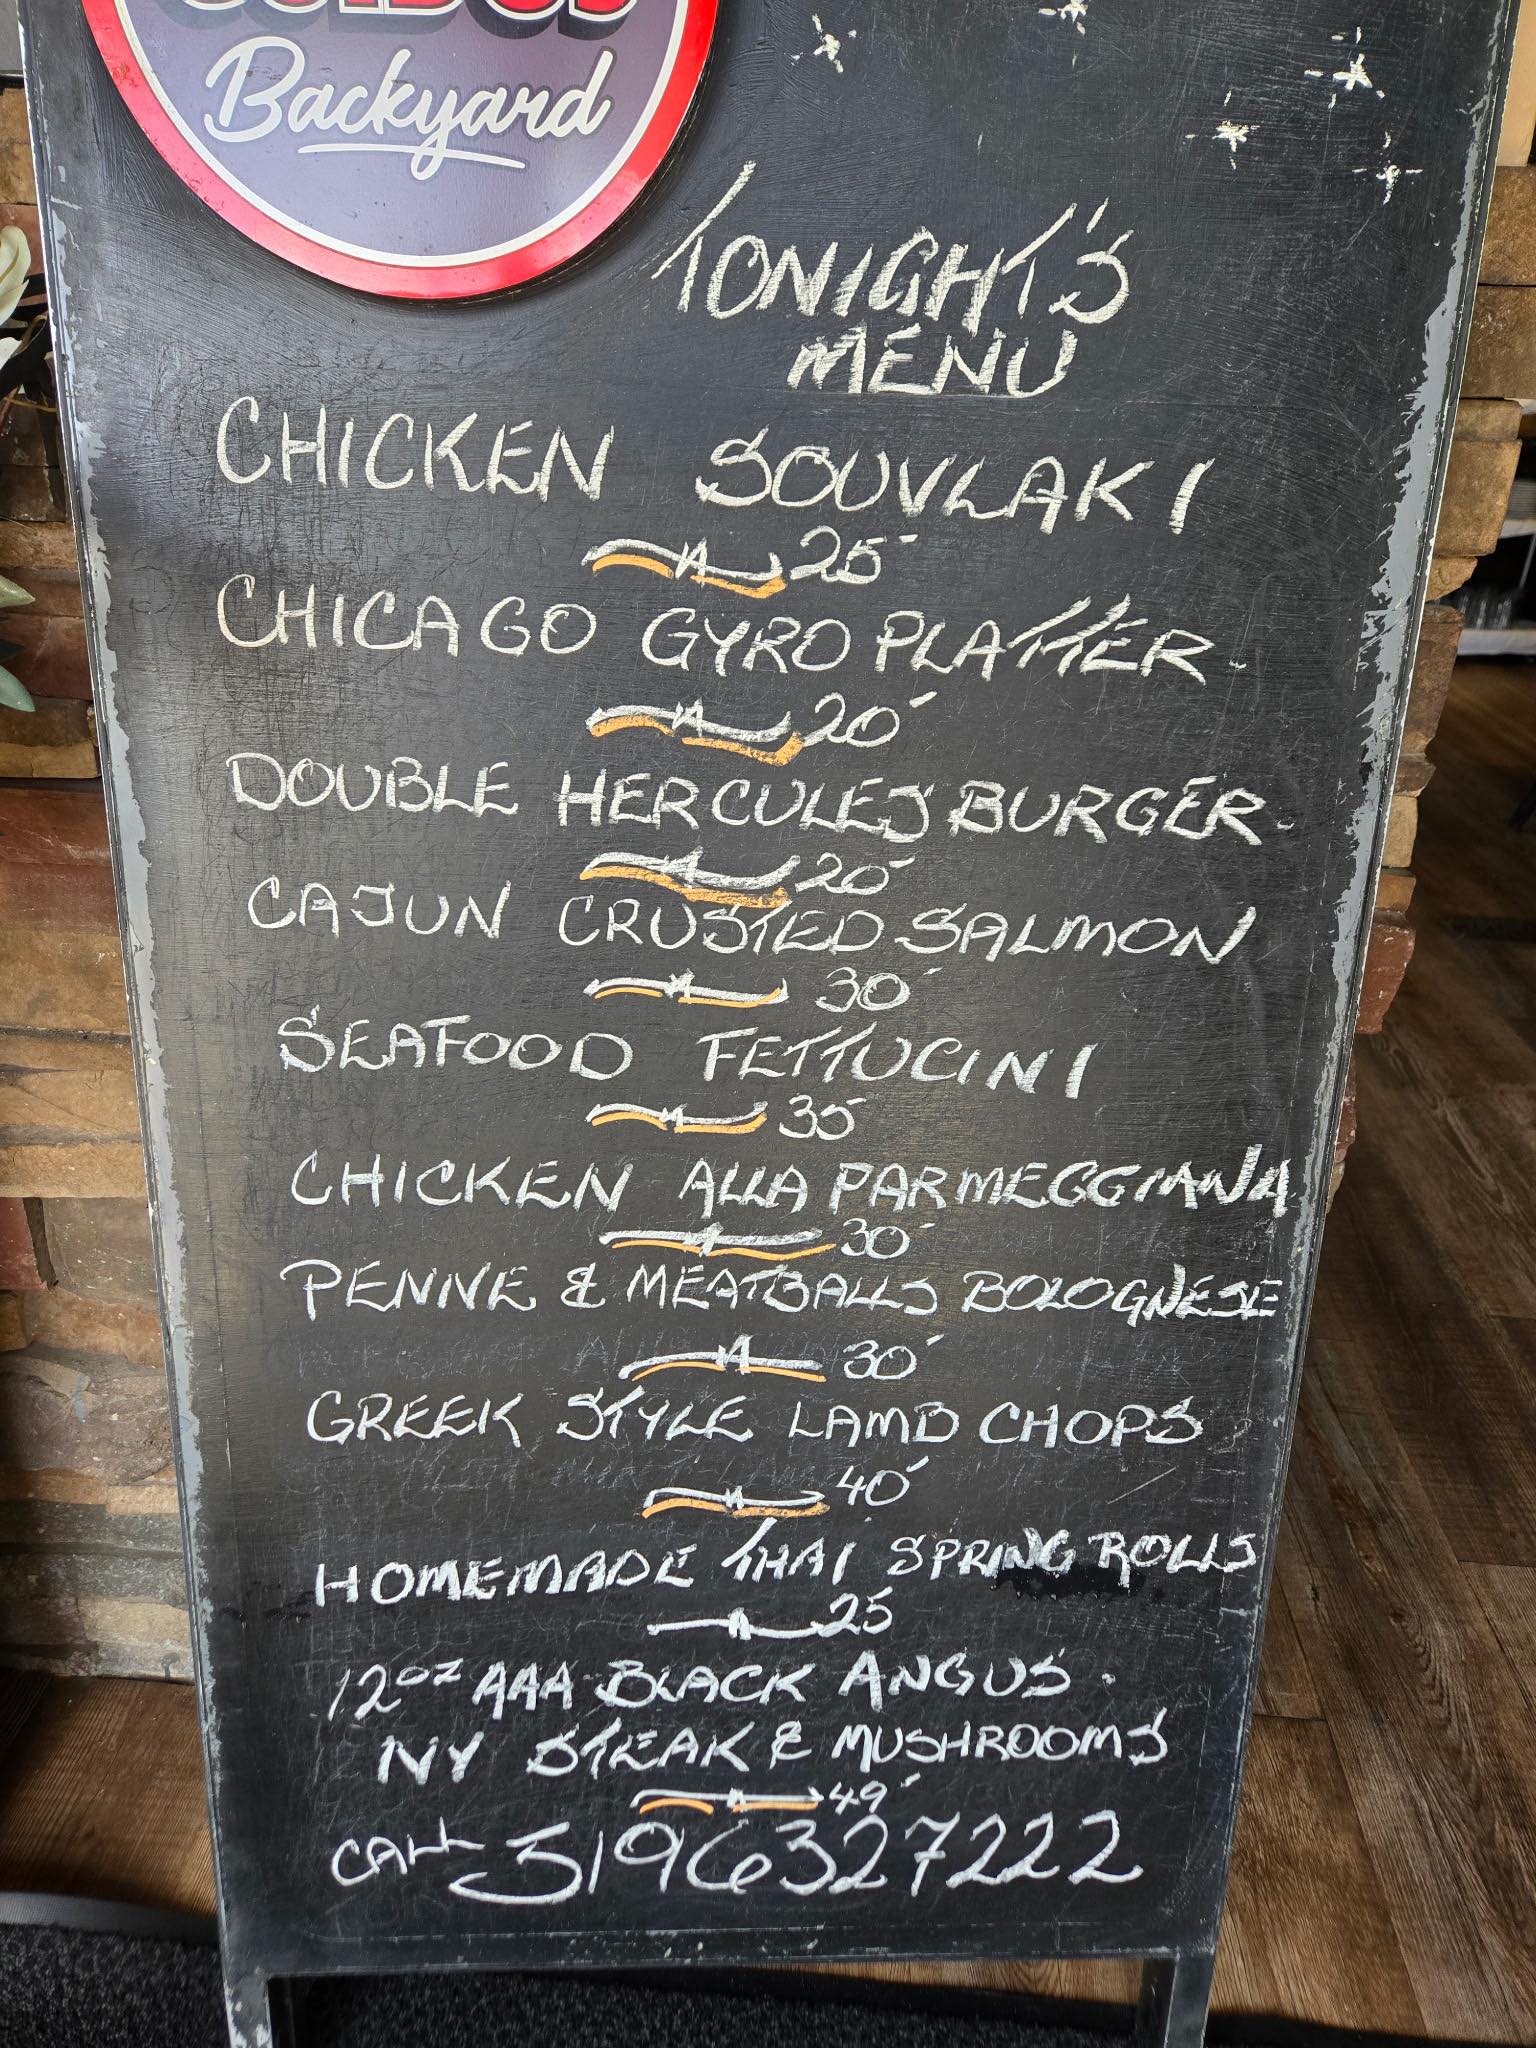 Backyard
TONIGHT'S
MENU
CHICKEN SOUVLAKI
25
CHICAGO GYRO PLATTER
20
DOUBLE HERCULES BURGER
20
CAJUN CRUSTED SALMON
30
SEAFOOD FETTUCINI
35
CHICKEN ALLA PARMEGGIANA
30
PENNE & MEATBALLS BOLOGNESE
30
GREEK STYLE LAMB CHOPS
40
HOMEMADE THAI SPRING ROLLS
25
12oz AAA BLACK ANGUS
NY STEAK & MUSHROOMS
49
CALL 5196327222